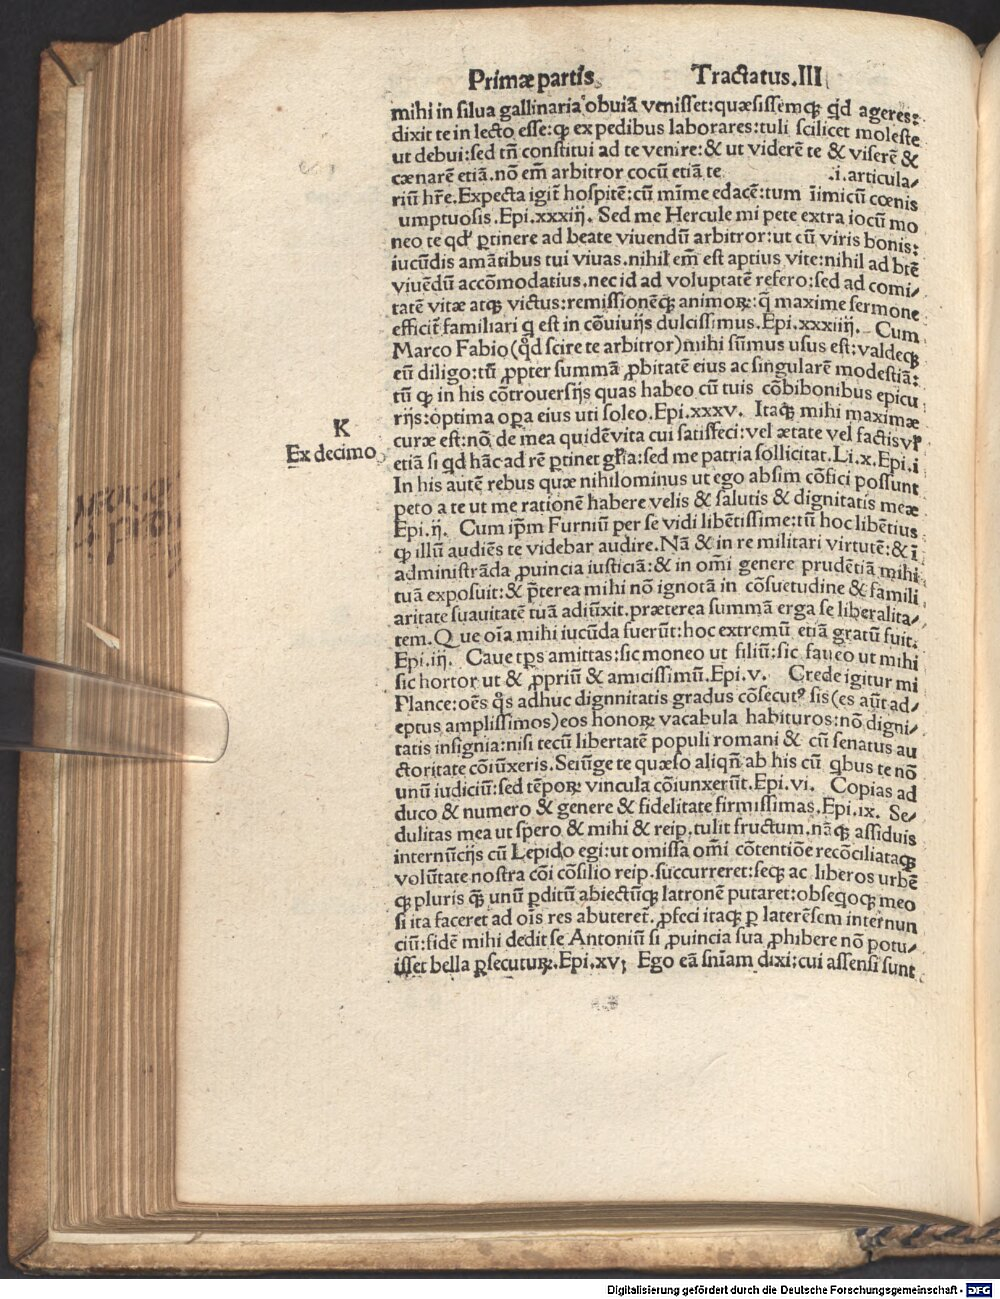 Primæ partis Tractatus.III
mihi in silua gallinaria obuiā venisset:quæsissemqꝫ qd ageres:
dixit te in lecto esse:qꝫ ex pedibus laborares:tuli scilicet moleste
ut debui:sed tñ constitui ad te venire:& ut viderē te & viserē &
cænarē etiā.nō em̄ arbitror cocū etiā te .i.articula/
riū hr̄e.Expecta igit̄ hospitē:cū mīme edacē:tum īimicū cœnis
umptuosis.Epi.xxxiij. Sed me Hercule mi pete extra iocū mo
neo te qd' ꝑtinere ad beate viuendū arbitror:ut cū viris bonis:
iucūdis amātibus tui viuas.nihil em̄ est aptius vite:nihil ad btē
viuēdū accōmodatius.nec id ad voluptatē refero:sed ad comi/
tatē vitæ atqꝫ victus:remissionēqꝫ animoꝝ:q̄ maxime sermone
efficit̄ familiari q est in cōuiuijs dulcissimus.Epi.xxxiiij. Cum
Marco Fabio(qd scire te arbitror)mihi sūmus usus est:valdeqꝫ
eū diligo:tū ꝓpter summā ꝓbitatē eius ac singularē modestiā:
tū qꝫ in his cōtrouersijs quas habeo cū tuis cōbibonibus epicu
rijs:optima oꝑa eius uti soleo.Epi.xxxv. Itaqꝫ mihi maximæ
K
curæ est:nō de mea quidē vita cui satisfeci:vel ætate vel factis vꝉ
Ex decimo
etiā si qd hāc ad rē ꝑtinet gꝉia:sed me patria sollicitat.Li.x.Epi.i
In his autē rebus quæ nihilominus ut ego absim cōfici possunt
peto a te ut me rationē habere velis & salutis & dignitatis meæ
Epi.ij. Cum ip̄m Furniū per se vidi libētissime:tū hoc libētius
qꝫ illū audiēs te videbar audire.Nā & in re militari virtutē:& ī
administrāda ꝓuincia iusticiā:& in om̄i genere prudētiā mihi
tuā exposuit:& p̄terea mihi nō ignotā in cōsuetudine & famili
aritate suauitatē tuā adiūxit.præterea summā erga se liberalita/
tem.Q ue oīa mihi iucūda fuerūt:hoc extremū etiā gratū fuit.
Epi.iij. Caue tp̄s amittas:sic moneo ut filiū:sic faueo ut mihi
sic hortor ut & ꝓpriū & amicissimū.Epi.v. Crede igitur mi
Plance:oēs q̊s adhuc dignnitatis gradus cōsecutꝰ sis(es aūt ad/
eptus amplissimos)eos honoꝝ vacabula habituros:nō digni/
tatis insignia:nisi tecū libertatē populi romani & cū senatus au
ctoritate cōiūxeris.Seiūge te quæso aliqñ ab his cū qbus te nō
unū iudiciū:sed tēpoꝝ vincula cōiunxerūt.Epi.vi. Copias ad
duco & numero & genere & fidelitate firmissimas.Epi.ix. Se/
dulitas mea ut spero & mihi & reip.tulit fructum.nāqꝫ assiduis
internūcijs cū Lepido egi:ut omissa om̄i cōtentiōe recōciliataqꝫ
volūtate nostra cōi cōsilio reip.succurreret:seqꝫ ac liberos urbē
qꝫ pluris qꝫ unū ꝑditū abiectūqꝫ latronē putaret:obseqoqꝫ meo
si ita faceret ad oīs res abuteret̄.ꝓfeci itaqꝫ ꝑ laterēsem internun
ciū:fidē mihi dedit se Antoniū si ꝓuincia sua ꝓhibere nō potu/
isset bella ꝑsecuturꝝ.Epi.xv; Ego eā sn̄iam dixi:cui assensi sunt
Digitalisierung gefördert durch die Deutsche Forschungsgemeinschaft - DFG